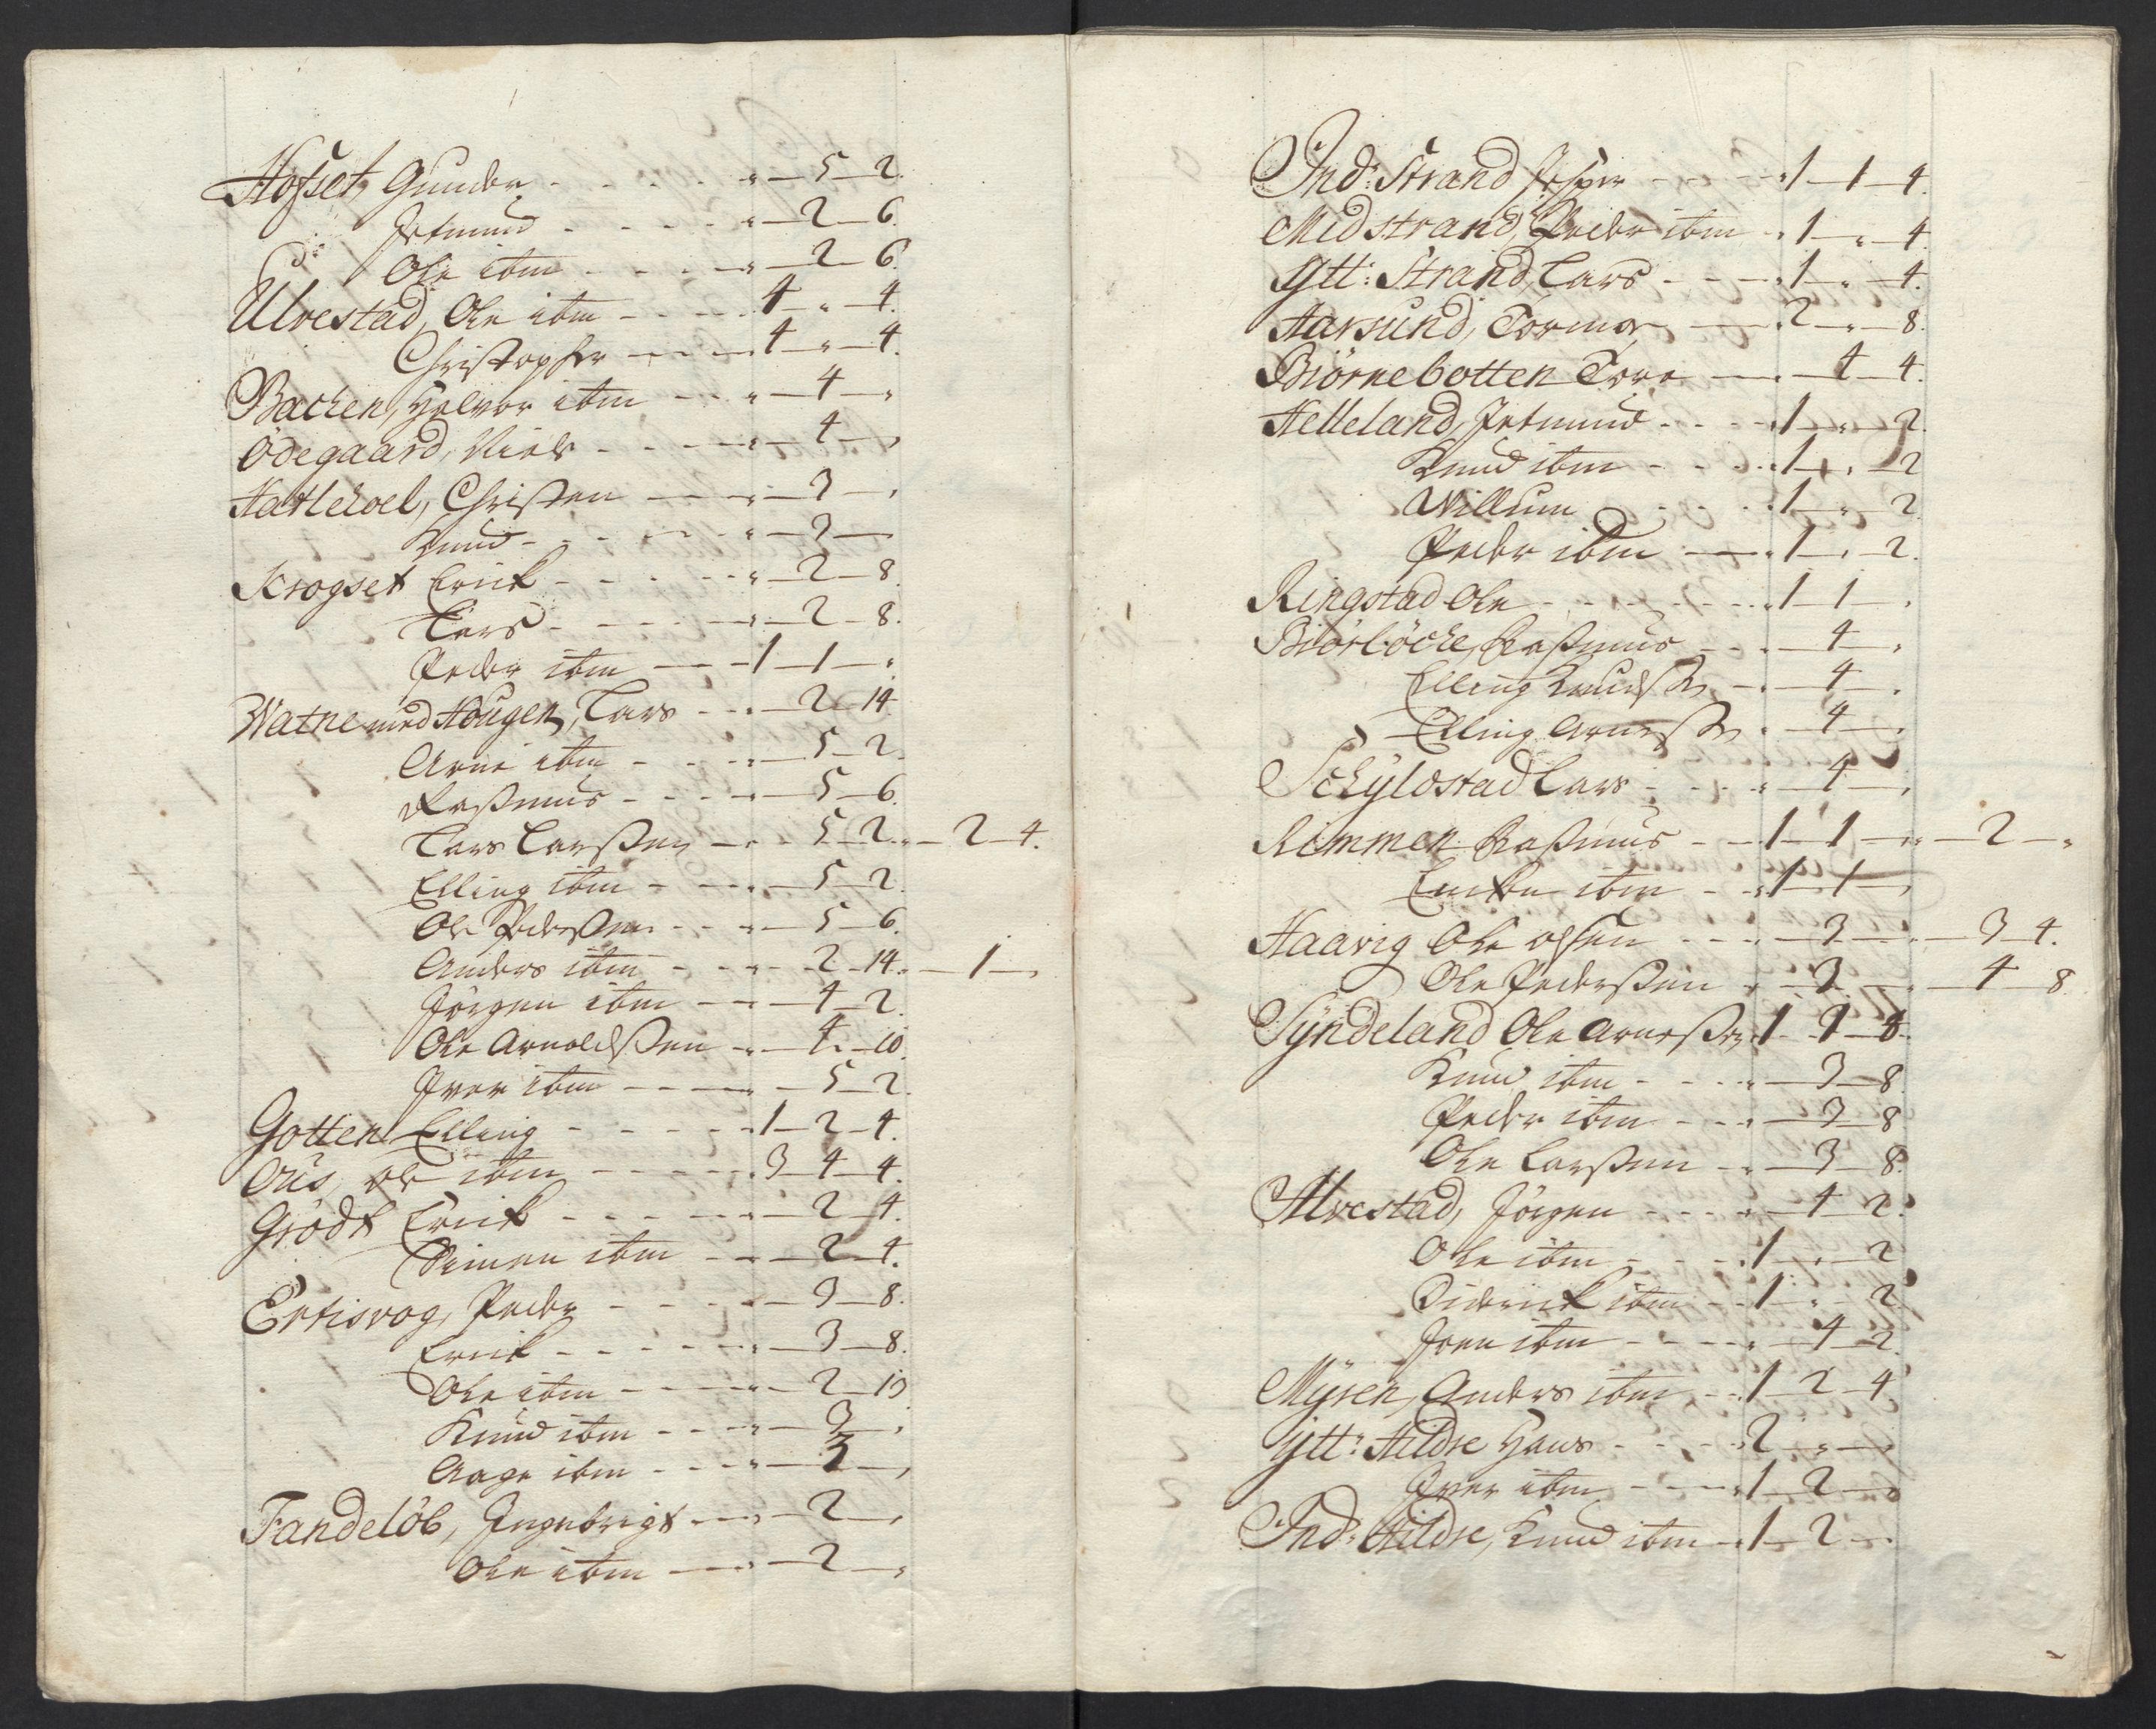 Hofset, Gunder - - - - " - 5 - 2.
Jetmund - - - - " - 2 - 6.
Ole ibm - - - " - 2 - 6.
Ulvestad, Ole ibm - - - 4 - " - 4.
Christopher - - - 4 - " - 4.
Bachen, Halvor ibm - - " - 4 - "
Ödegaard, Niels - - - - " - 4 - "
Hatlekoel, Christen - - " - 3 - "
Knud - - - - " - 3 -
Krogset Erick - - - - " - 2 - 8.
Lars - - - - " - 2 - 8.
Peder ibm - - 1 - 1 - "
Watne med Hougen, Lars - - " - 2 - 14.
Arne ibm - - - " - 5 - 2.
Rasmus - - - " - 5 - 6.
Lars Larssen - " - 5 - 2. " - 2 - 4.
Elling ibm - - " - 5 - 2.
Ole Pedersen - - " - 5 - 6.
Anders ibm - - " - 2 - 14. " - 1 - "
Jörgen ibm - - " - 4 - 2.
Ole Arnoldssen - " - 4 - 10.
Iver ibm - - - " - 5 - 2.
Gotten Elling - - - - 1 - 2 - 4.
Ous, Ole ibm - - - - 3 - 4 - 4.
Grödt Erick - - - - " - 2 - 4.
Simen ibm - - " - 2 - 4.
Ertisvog, Peder - - - " - 3 - 8.
Erick - - - - " - 3 - 8.
Ole ibm - - - " - 2 - 13
Knud ibm - - - " - 3 - "
Aage ibm - - - " - 3 - "
Fandelöb, Ingebrigt - - " - 2 - "
Ole ibm - - " - 2 - "
Ind: Strand Jesper - - - 1 - 1 - 4.
Midstrand, Peder ibm - 1 - " - 4.
Ytt: Strand, Lars - - - 1 - " - 4.
Haksund, Tormor - - 2 - " - 8.
Biörnebotten Tore - - " - 4 - 4.
Helleland, Jetmund - - - 1 - " - 2.
Knud ibm - - - 1 - " - 2
Willum - - - 1 - " - 2
Peder ibm - - 1 - " - 2.
Ringstad Ole - - - - 1 - 1 - "
Biörlöcke, Rasmus - - " - 4 - "
Elling Knudssen - " - 4 - "
Elling Arnessen " - 4 - "
Schyldstad Lars - - - " - 4 - "
Rimmen Rasmus - - 1 - 1 - " " - 2 - "
ibm - - 1 - 1 - "
Haavig Ole Olsen - - - " - 3 - " " - 3 - 4.
Ole Pederssen " - 3 - " " - 4 - 8
Syndeland Ole Arnessen 1 - 1 - 8.
Knud ibm - - - " - 3 - 8.
Peder ibm - - - " - 3 - 8
Ole Larssen - " - 3 - 8.
Alvestad, Jörgen - - - " - 4 - 2.
Ole ibm - - - 1 - " - 2
Diderick ibm - 1 - " - 2.
Joen ibm - - - " - 4 - 2.
Myren, Anders ibm - - 1 - 2 - 4.
Ytt: Hildre Hans - - - 2 - " - "
Iver ibm - - - 1 - 2 - "
Ind: Hildre, Knud ibm - 1 - 2 - "